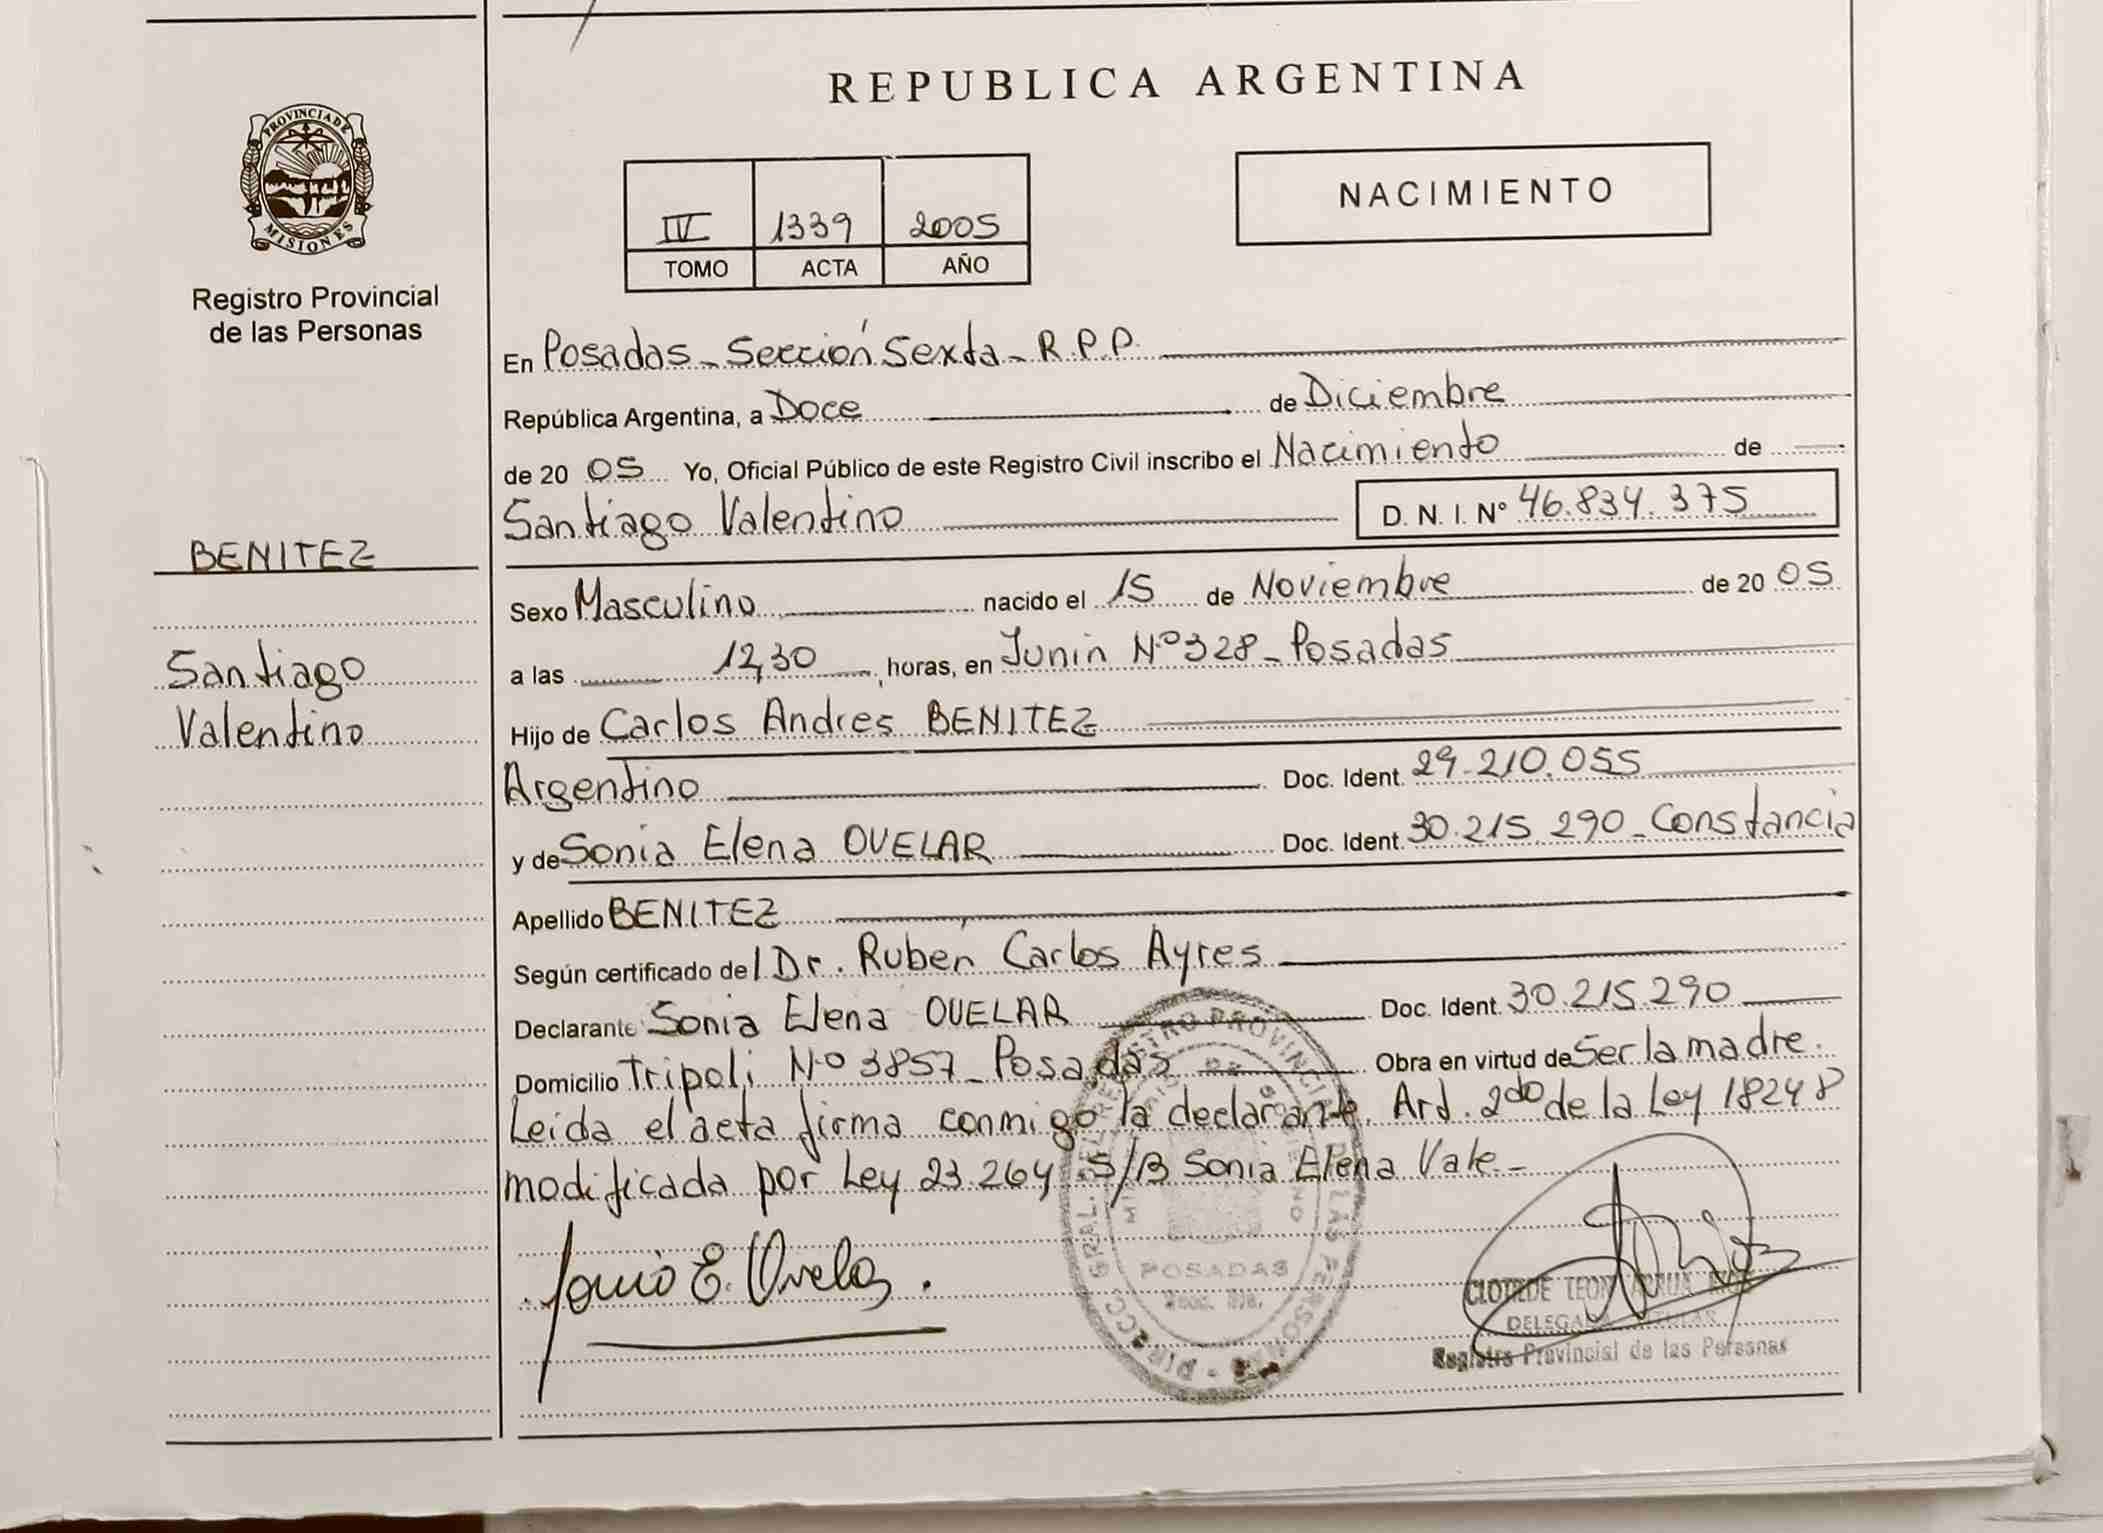 REPUBLICA ARGENTINA
PROVINCIA DE
MISIONES
Registro Provincial
de las Personas
NACIMIENTO
IV 1339 2005
TOMO ACTA AÑO
En Posadas - Sección Sexta - R.P.P.
República Argentina, a Doce de Diciembre
de 20 05 Yo, Oficial Público de este Registro Civil inscribo el Nacimiento de
Santiago Valentino D. N. I. Nº 46.834.375
BENITEZ
Santiago
Valentino
Sexo Masculino nacido el 15 de Noviembre de 20 05
a las 12,30 horas, en Junin Nº 328 - Posadas
Hijo de Carlos Andres BENITEZ
Argentino Doc. Ident. 29.210.055
y de Sonia Elena OVELAR Doc. Ident. 30.215.290 - Constancia
Apellido BENITEZ
Según certificado del Dr. Ruben Carlos Ayres
Declarante Sonia Elena OVELAR Doc. Ident. 30.215.290
Domicilio Tripoli Nº 3857 - Posadas Obra en virtud de Ser la madre.
Leida el acta firma conmigo la declarante. Art. 2do de la Ley 18248
modificada por Ley 23.264 S/B Sonia Elena Vale -
Sonia E. Ovelar.
POSADAS
CLOTILDE LEON
DELEGADA TITULAR
Registro Provincial de las Personas